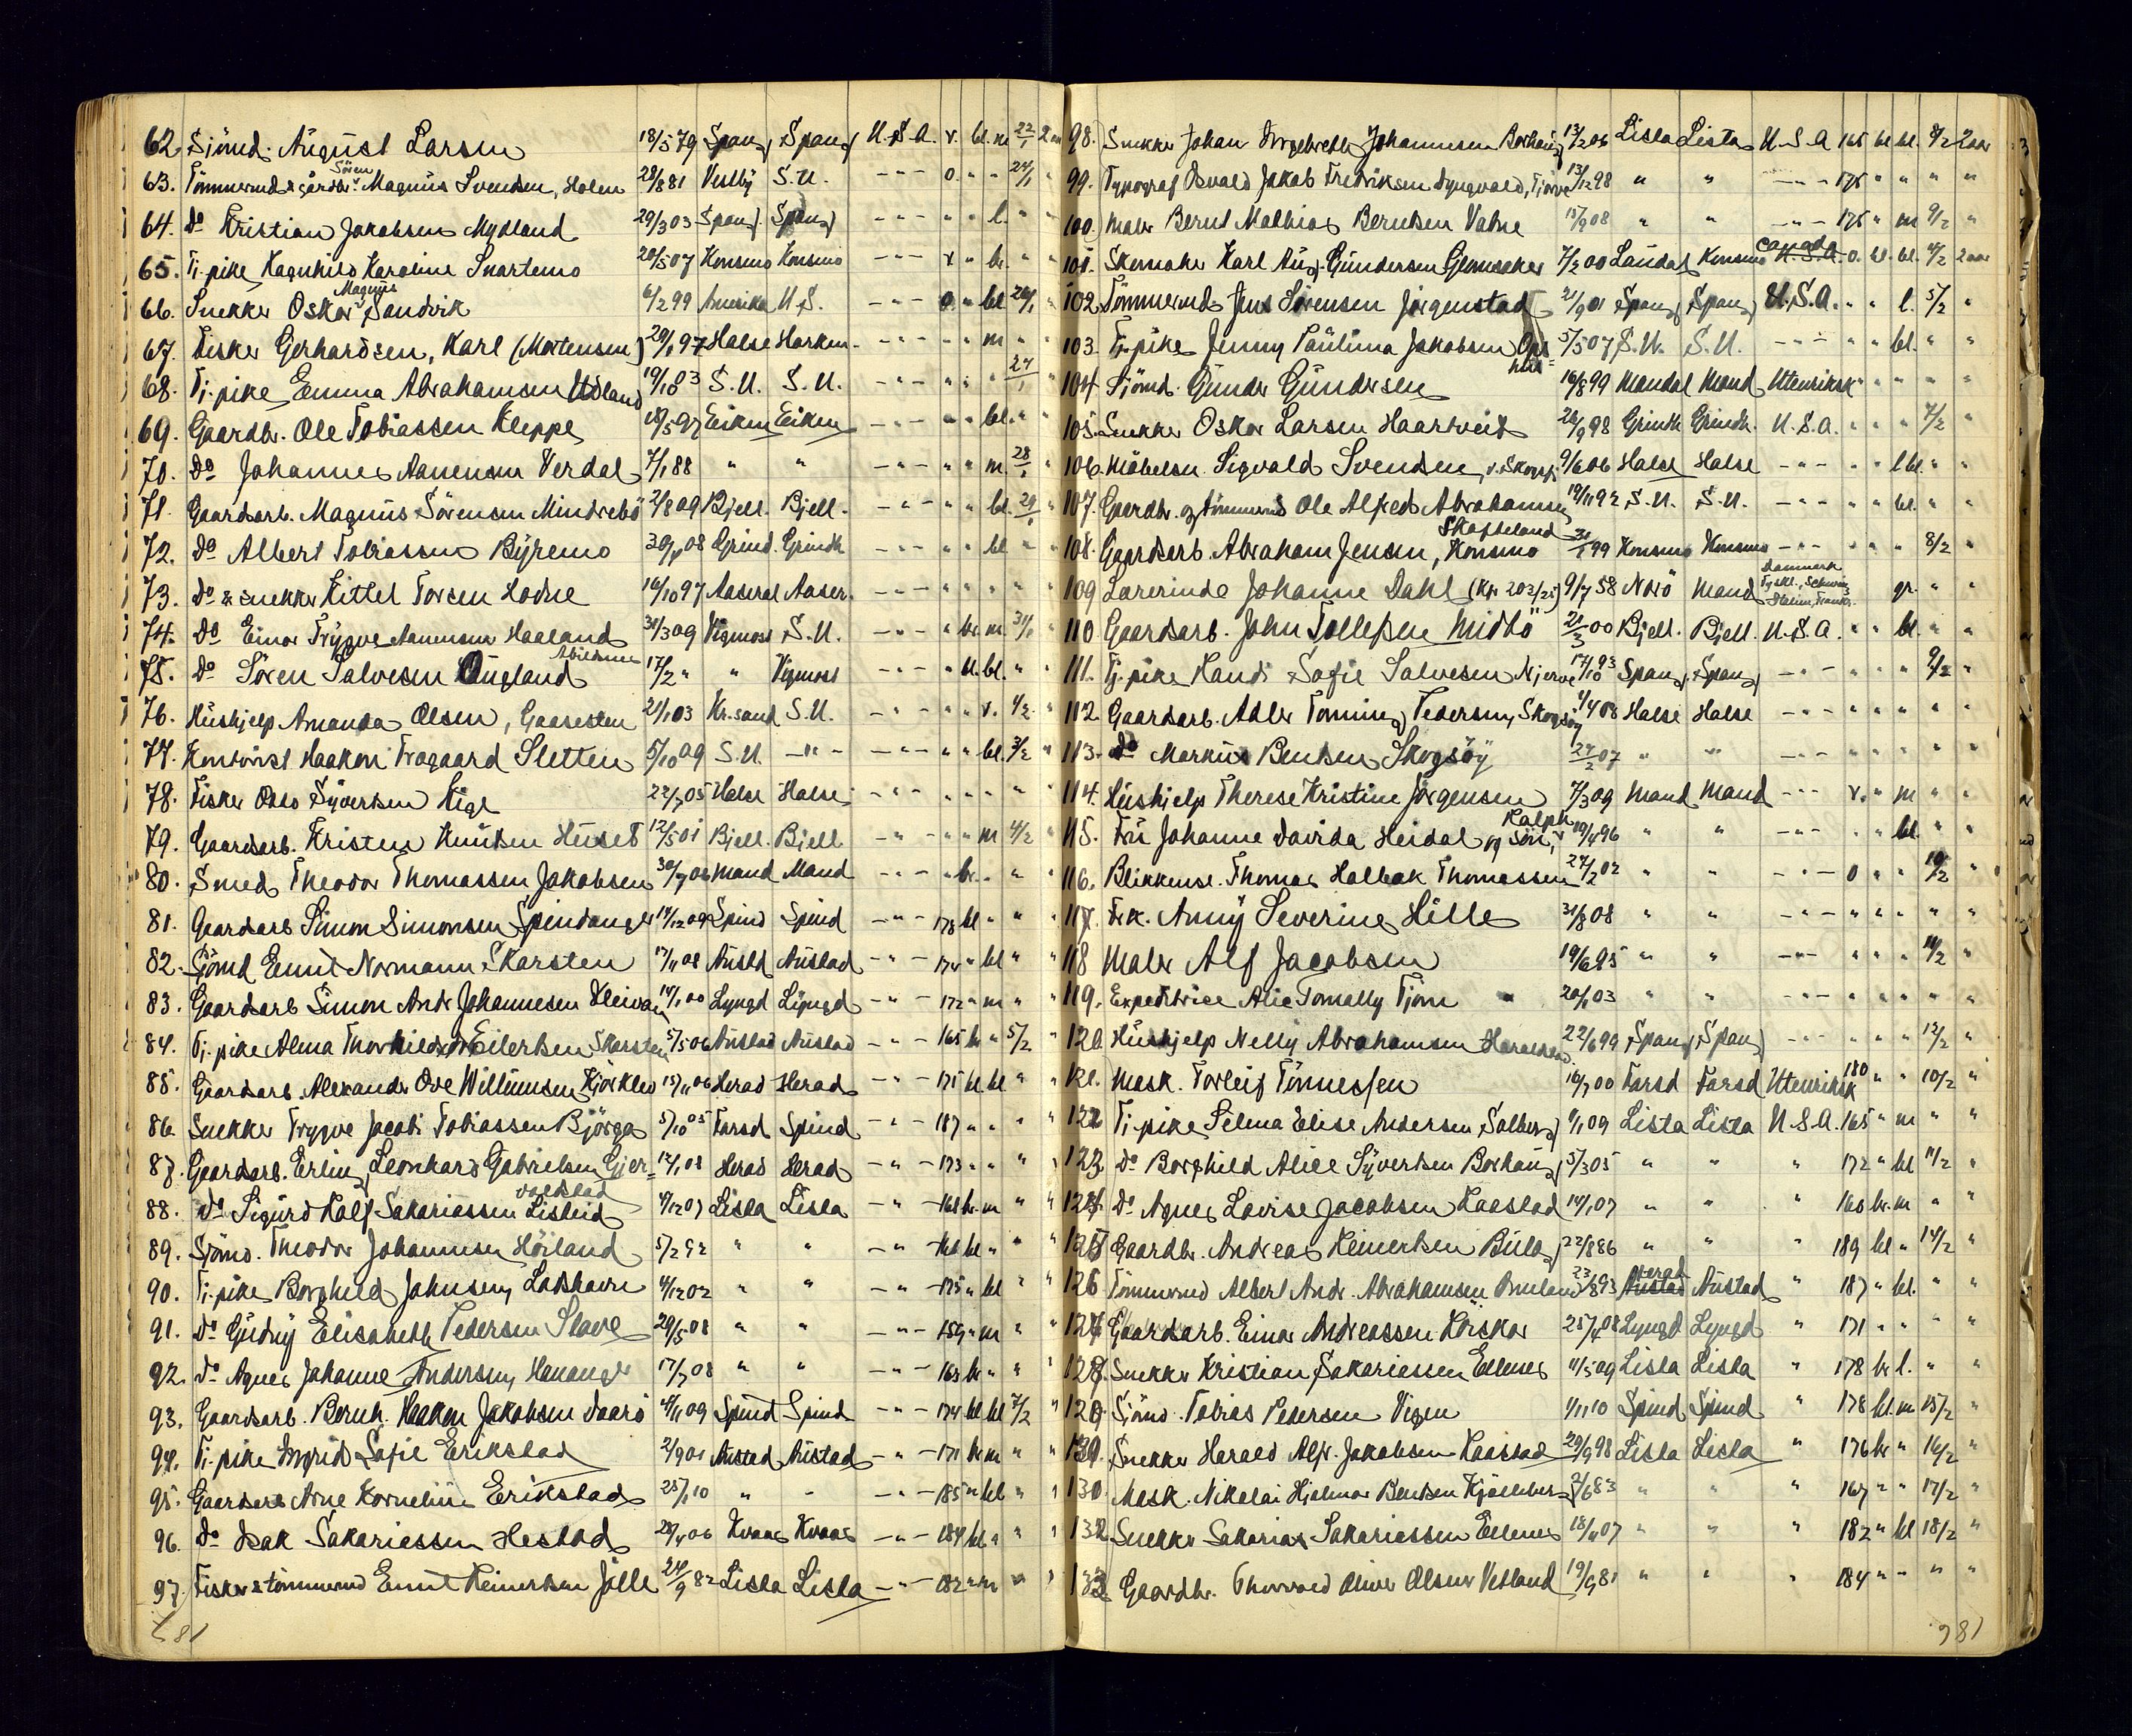 62. Sjömd. August Larsen 18/5 79 Spang. Spang. U.S.A. v. bl. m 22/1 2 aar
63. Tömmermd & gårdbr. Sören Magnus Svendsen, Holen 28/8 81 Valby S.U. - " - o. " " 24/1 "
64. Do Kristian Jakobsen Mydland 29/3 03 Spang. Spang. - " - " " l. " "
65. Tj. pike Ragnhild Karoline Svartemo 20/5 07 Konsmo Konsmo - " - v " br. " "
66. Snekker Oskar Magnus Sandvik 6/2 99 Amerika U.S. - " - o. " bl 26/1 "
67. Fisker Gerhardsen, Karl (Mortensen) 29/1 97 Halse Harkm. - " - " " m " "
68. Tj. pike Emma Abrahamsen Udland 19/1 83 S.U. S.U. - " - " " " 27/1 "
69. Gaardbr. Ole Tobiassen Kleppe 18/5 97 Eiken Eiken - " - " " bl. " "
70. Do Johannes Aanensen Verdal 7/1 88 " " - " - " " m. 28/1 "
71. Gaardsarb. Magnus Sörensen Mindrebö 2/8 09 Bjell. Bjell. - " - " " bl. 29/1 "
72. Do Albert Tobiassen Byremo 30/1 08 Grind. Grindh - " - " " bl " "
73. Do & snekker Kittel Torsen Lodne 16/10 97 Aaseral Aaser. - " - " " " " "
74. Do Einar Trygve Aanensen Haaland 31/3 09 Vigmost S.U. - " - " br. m. 31/1 "
75. Do Sören Salvesen Augland 17/2 " " Vigmost - " - " bl. bl. " "
76. Hushjelp Amanda Olsen, Gaasesten 21/1 03 Kr.sand S.U. - " - " " v. 1/2 "
77. Kontorist Haakon Fragaard Sletten 5/10 09 S.U. - " - - " - " " bl. 3/2 "
78. Fisker Osvo Syvertsen Kige 22/7 05 Halse Halse - " - " " " " "
79. Gaardsarb. Kristen Knutsen Huset 12/5 01 Bjell. Bjell - " - " " m 4/2 "
80. Smed Theodor Thomassen Jakobsen 30/7 06 Mand Mand - " - " br. " " "
81. Gaardsarb Simon Simonsen Spindanger 14/12 09 Spind Spind - " - 178 bl " " "
82. Sjömd Emil Normann Skarsten 17/11 08 Austd Austad - " - 174 " bl " "
83. Gaardsarb Simon Andr Johannesen Kleivan 14/1 00 Lyngd Lyngd - " - 172 " m " "
84. Tj. pike Alma Thorhilda Eilertsen Skarsten 5/5 06 Austad Austad - " - 165 br " 5/2 "
85. Gaardsarb. Alexander Ove Williumsen Kjörklev 15/11 06 Herad Herad - " - 175 bl bl " "
86. Snekker Trygve Jacobi Tobiassen Björga 5/10 05 Farsd Spind - " - 187 " " " "
87. Gaardsarb. Erling Leonhard Gabrielsen Gjervoldstad 12/1 08 Herad Herad - " - 173 " " " "
88. Do Sigurd Ralf Sakariassen Listeid 4/12 07 Lista Lista - " - 168 br. m " "
89. Sjömd. Theodor Johannesen Höiland 5/2 92 " " - " - 166 bl " " "
90. Tj. pike Borghild Johnsen, Loshavn 4/12 02 " " - " - 175 " bl " "
91. Do Gudny Elisabeth Pedersen Stave 29/5 08 " " - " - 159 " m " "
92. Do Agnes Johanne Andersen, Hananger 17/7 08 " " - " - 163 br " " "
93. Gaardsarb. Bernh. Haakon Jakobsen Daarö 4/11 09 Spind Spind - " - 174 bl bl 7/2 "
94. Tj. pike Ingrid Sofie Erikstad 2/9 01 Austad Austad - " - 171 br m " "
95. Gaardsarb Arne Kornelius Erikstad 25/1 10 " " - " - 185 " bl " "
96. Do Isak Sakariassen Hestad 28/4 06 Kvaas Kvaas - " - 184 bl " " "
97. Fisker & tömmermd Emil Reinertsen Jölle 24/9 82 Lista Lista - " - 182 " m " "
98. Snekker Johan Ingebreth Johannesen Borhaug 13/2 06 Lista Lista U.S.A 165 bl bl. 8/2 2 aar
99. Typograf Osvald Jakob Fredriksen Dyngvold, Tjörve 13/12 98 " " - " - 175 " " " "
100. Maler Bernt Mathias Berntsen Vatne 15/9 08 " " - " - 175 " m 9/2 "
101. Skomaker Karl Aug. Gundersen Glomsaker 7/2 00 Laudal Konsmo Canada U.S.A. o. bl. bl. 4/2 2 aar
102. Tömmermd Jens Sörensen Jörgenstad 21/9 01 Spang Spang U.S.A. " " l. 5/2 "
103. Tj. pike Jenny Paulina Jakobsen 5/5 07 S.U. S.U. - " - " " bl. " "
104. Sjömd. Gunder Gundersen 16/8 99 Mandal Mand Utenriksk " " " " "
105. Snekker Oskar Larsen Haartveit 26/9 98 Grindh Grindh. U.S.A. " " " 7/2 "
106. Möbelsn. Sigvald Svendsen, v. Skogsf. 9/6 06 Halse Halse - " - " " lbl. " "
107. Gaardbr. og tömmermd Ole Alfred Abrahamsen 19/11 92 S.U. S.U. - " - " " bl. " "
108. Gaardsarb. Abraham Jensen, Skofteland Konsmo 99 Konsmo Konsmo - " - " " " 8/2 "
109 Lærerinde Johanne Dahl (Kr. 203/25) 9/7 58 Narö Mand Danmark Tyskl., Schweiz Italien, Frankr. gr. " "
110 Gaardsarb. John Tollefsen Midbö 21/3 00 Bjell. Bjell. U.S.A. " " bl. " "
111. Tj. pike Randi Sofie Salvesen Njerve 17/10 93 Spang. Spang. - " - " " " 9/2 "
112. Gaardsarb. Adler Tönning Pedersen, Skogsöy 1/4 08 Halse Halse - " - " " " " "
113. Do Markus Bentsen Skogsöy 24/2 07 " " - " - " " " " "
114. Hushjelp Therese Kristine Jörgensen 7/3 09 Mand Mand - " - v. " m " "
115. Fru Johanne Davida Heidal og sön, Ralph 19/4 96 " " - " - " " bl. " "
116. Blikkensl. Thomas Holbæk Thomassen 27/2 02 " " - " - o " " 10/2 "
117. Frk. Anny Severine Hille 31/8 08 " " - " - " " " " "
118 Maler Alf Jacobsen 19/6 95 " " - " - " " " 11/2 "
119. Expeditrice Alie Tomally Tjöm 20/1 03 " " - " - " " " " "
120. Hushjelp Nelly Abrahamsen Haraldsen 22/6 99 Spang. Spang. - " - " " " 12/2 "
121. Mask. Torleif Tönnessen 16/7 00 Farsd Farsd Utenriksk 180 " " 10/2 "
122 Tj. pike Selma Elise Andersen Solberg 1/1 09 Lista Lista U.S.A. 165 " m " "
123. Do Borghild Alice Syvertsen Borhaug 5/3 05 " " " 172 " bl 11/2 "
124. Do Agnes Lovise Jacobsen Kaastad 14/1 07 " " " 168 br. m " "
125 Gaardbr. Andreas Reinertsen Bülo 22/8 86 " " " 189 bl " 14/2 "
126 Tömmermd Albert Andr. Abrahamsen 23/8 93 Herad Austad Austad " 187 " bl. " "
127 Gaardsarb. Einar Andreassen Röiskar 25/4 08 Lyngd Lyngd " 171 " " " "
128. Snekker Kristian Sakariassen Ellenes 11/5 09 Lista Lista " 178 br l. " "
129 Sjömd. Tobias Pedersen Vigen 1/11 10 Spind Spind " 178 bl. m 15/2 "
130. Snekker Harald Alfr. Jakobsen Kaastad 29/9 98 Lista Lista " 176 br " 16/2 "
130. Mask. Nikolai Hjalmar Bentsen Kjölleberg 2/6 83 " " " 167 " " 17/2 "
132 Snekker Sakarias Sakariassen Ellenes 18/4 07 " " " 182 " bl 18/2 "
133 Gaardbr. Thorvald Oliver Olsen Vetland 19/9 81 " " " 184 " " " "